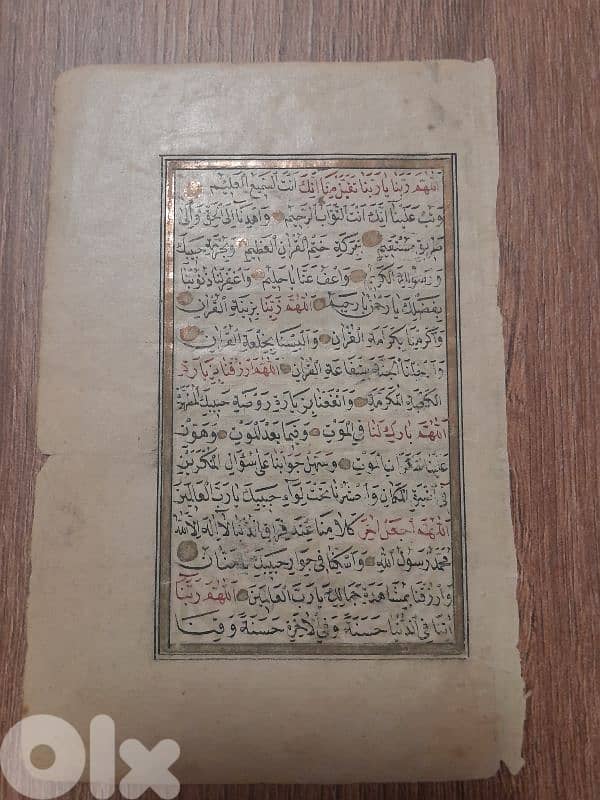 اللهم ربنا يا ربنا تقبل منا انك انت السميع العليم
وتب علينا انك انت التواب الرحيم واهدنا الى الحق والى
طريق مستقيم ببركة ختم القران العظيم وبحرمة حبيبك
ورسولك الكريم واعف عنا يا حليم واغفر لنا ذنوبنا
بفضلك يا رحمن يا رحيم اللهم زينا بزينة القران
واكرمنا بكرامة القران والبسنا بخلعة القران
وادخلنا الجنة بشفاعة القران اللهم ارزقنا بزيارة
الكعبة المكرمة وانفعنا بزيارة روضة حبيبك المطهرة
اللهم بارك لنا في الموت وفيما بعد الموت وهون
علينا سكرات الموت وسهل جوابنا على سؤال المنكرين
في اضيق المكان واحشرنا تحت لواء حبيبك يا رب العالمين
اللهم اجعل اخر كلامنا عند فراق الدنيا لا اله الا الله
محمد رسول الله واسكنا في جوار حبيبك يا منان
وارزقنا بمشاهدة جمالك يا رب العالمين اللهم ربنا
اتنا في الدنيا حسنة وفي الاخرة حسنة وقنا
olx